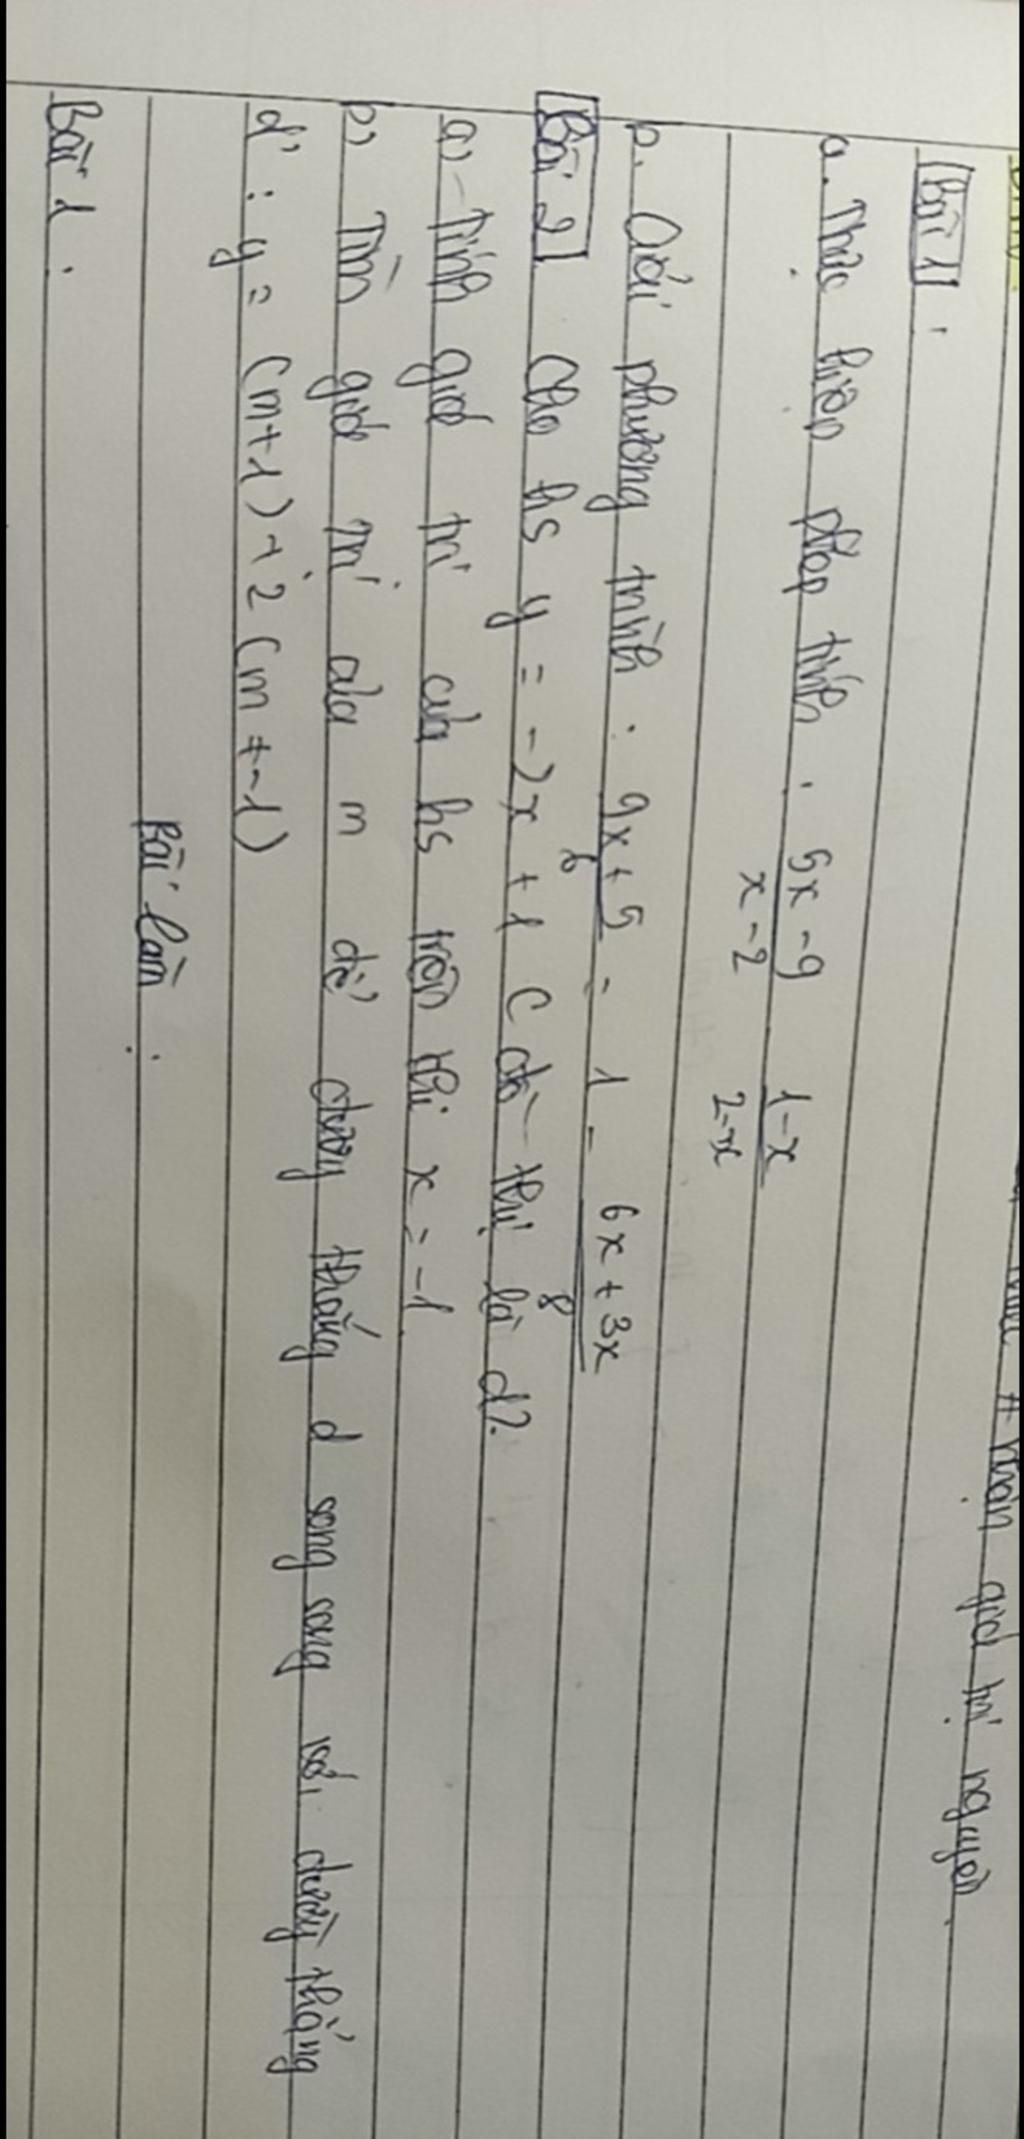 nhận giá trị nguyên.
Bài 1:
a. Thực hiện phép tính: 5x-9 / x-2 1-x / 2-x
b. Giải phương trình: 9x+5 / 6 = 1 - 6x+3x / 8
Bài 2 Cho hs y = -2x + 1 ( đồ thị là d).
a) Tính giá trị của hs trên khi x = -1
b) Tìm giá trị của m để đường thẳng d song song với đường thẳng
d': y = (m+1) + 2 (m + -1)
Bài làm:
Bài 1.